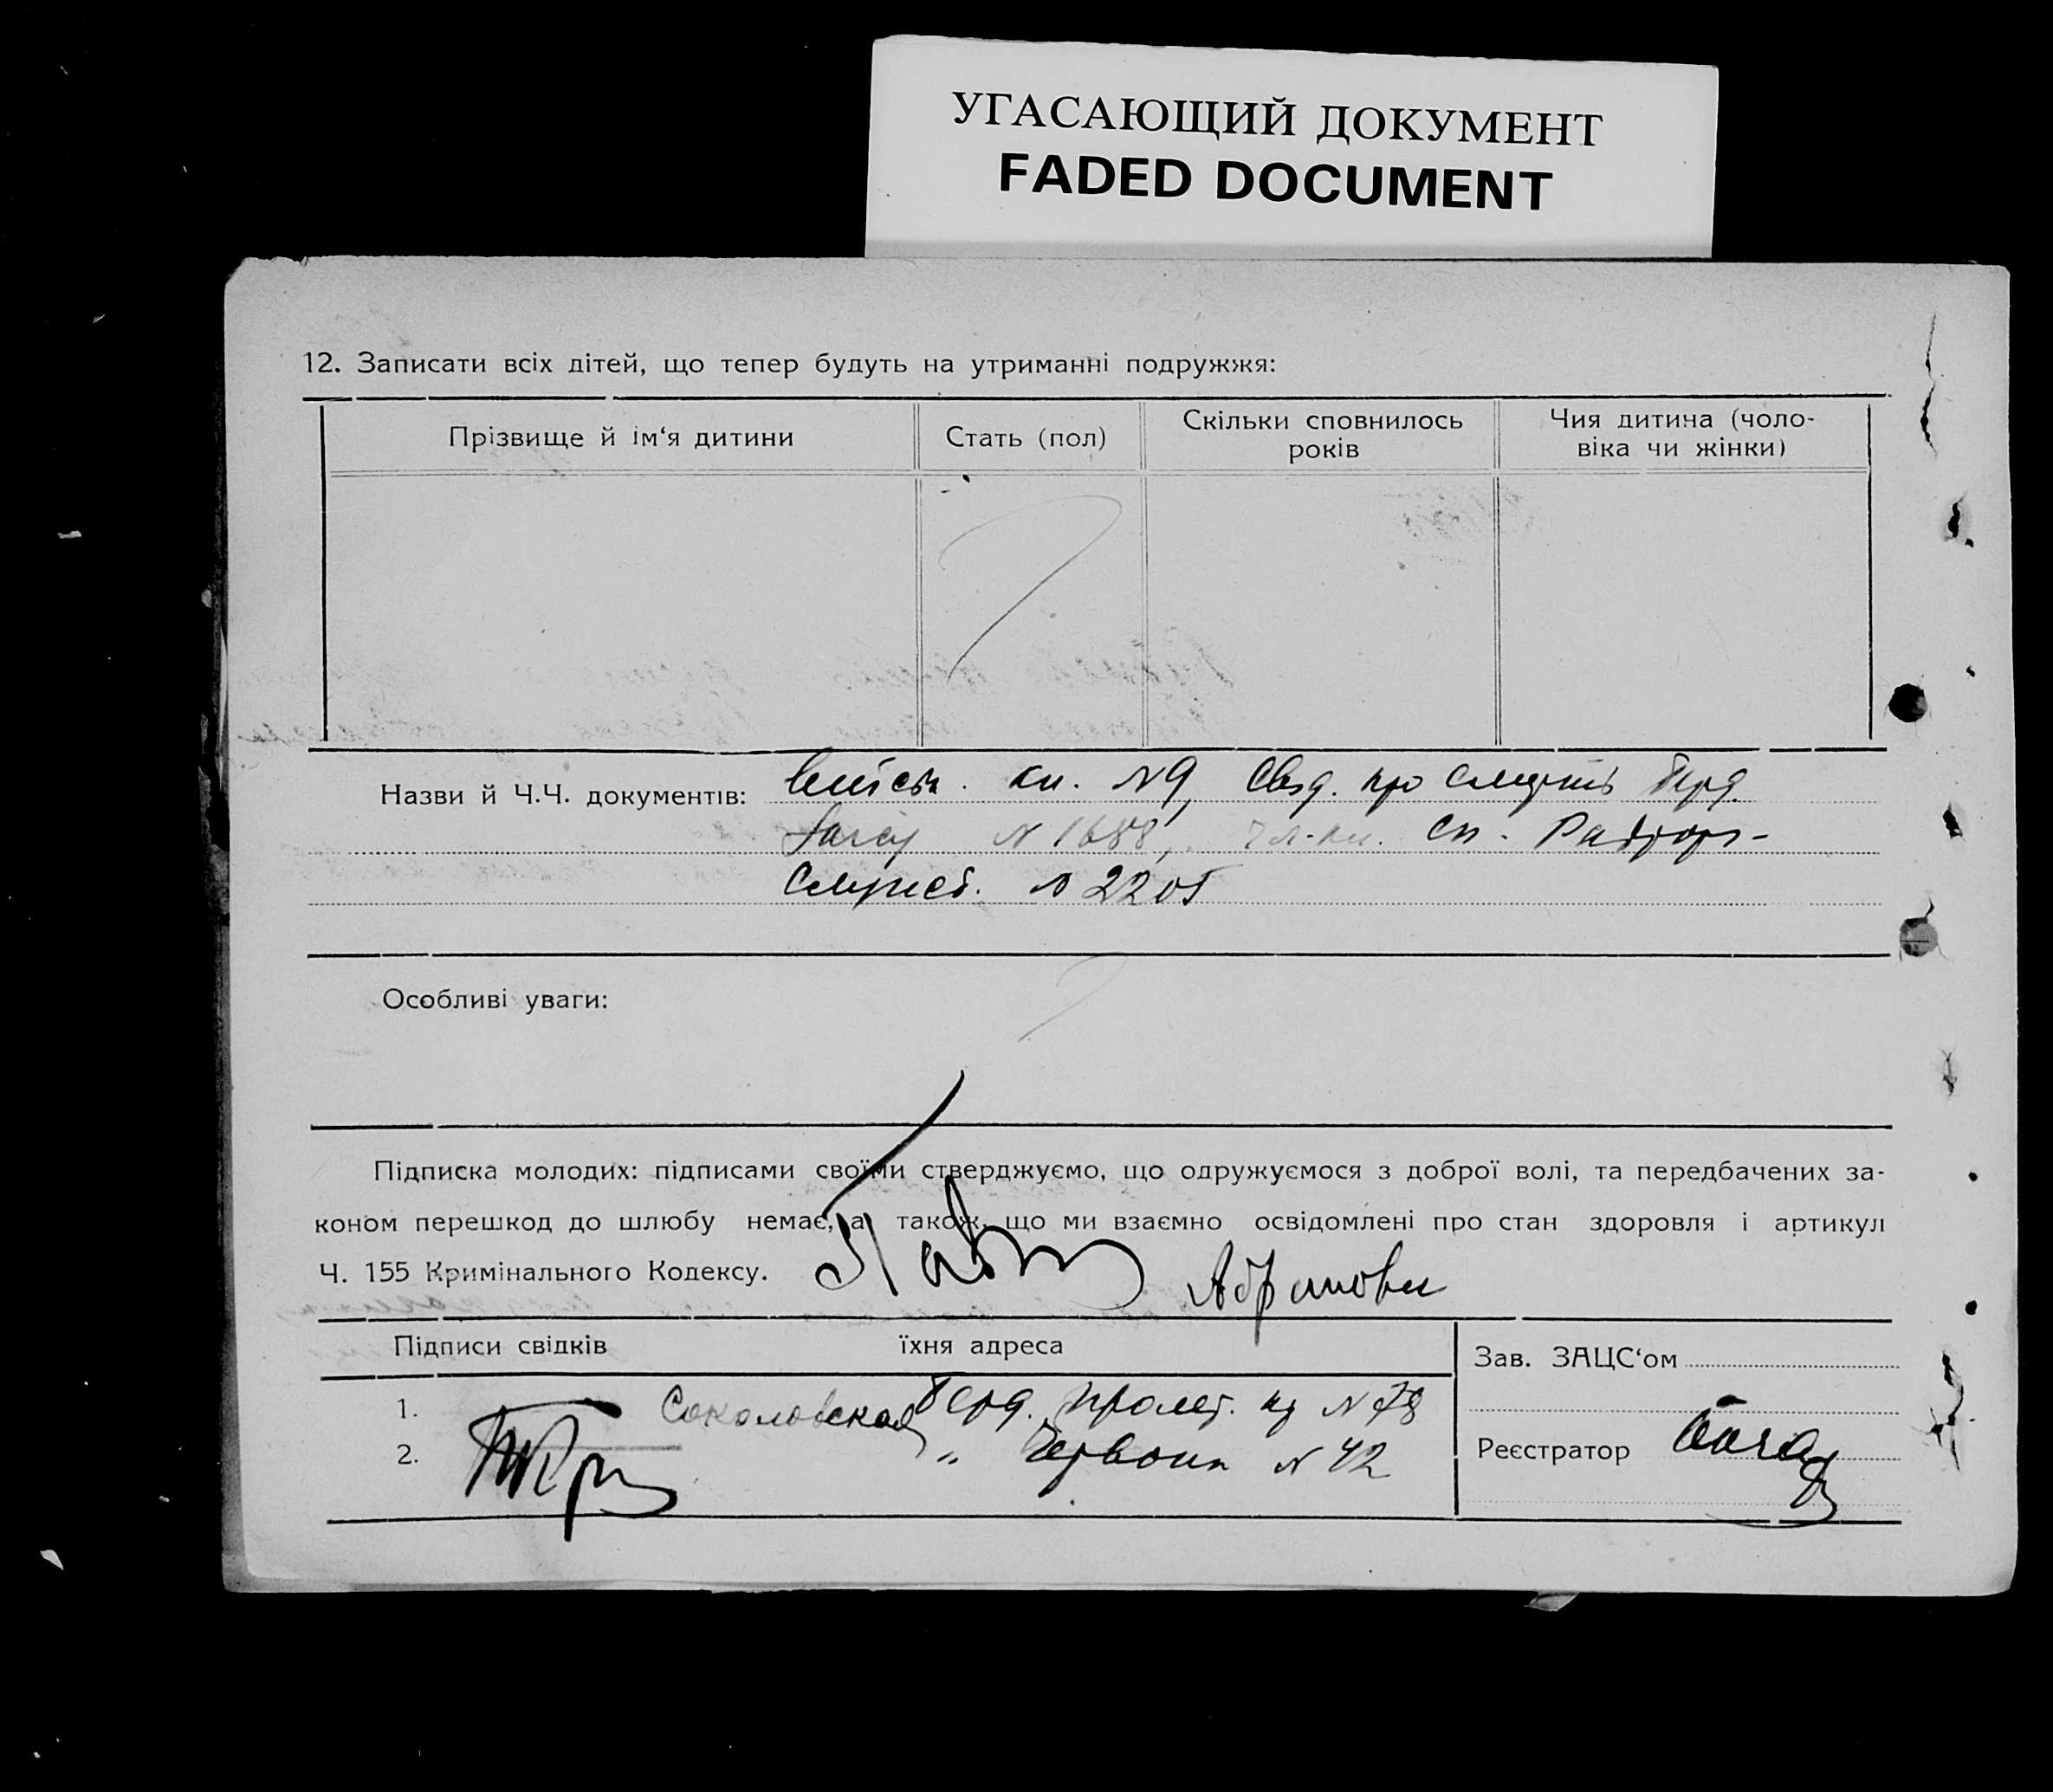 УГАСАЮЩИЙ ДОКУМЕНТ
FADED DOCUMENT
12. Записати всіх дітей, що тепер будуть на утриманні подружжя:
Прізвище й ім‘я дитини
Стать (пол)
Скільки сповнилось
років
Чия дитина (чоло-
віка чи жінки)
Назви й Ч.Ч. документів: кн. №9, про смерть Берд.
№ 1688, чл. кн. Сп.
№ 2205
Особливі уваги:
Підписка молодих: підписами своїми стверджуємо, що одружуємося з доброї волі, та передбачених за-
коном перешкод до шлюбу немає, а також, що ми взаємно освідомлені про стан здоровля і артикул
Ч. 155 Кримінального Кодексу.
Підписи свідків
їхня адреса
Зав. ЗАЦС‘ом
1. Соколовская Берд. Пролет. №78
2. „ Червона №42
Реєстратор